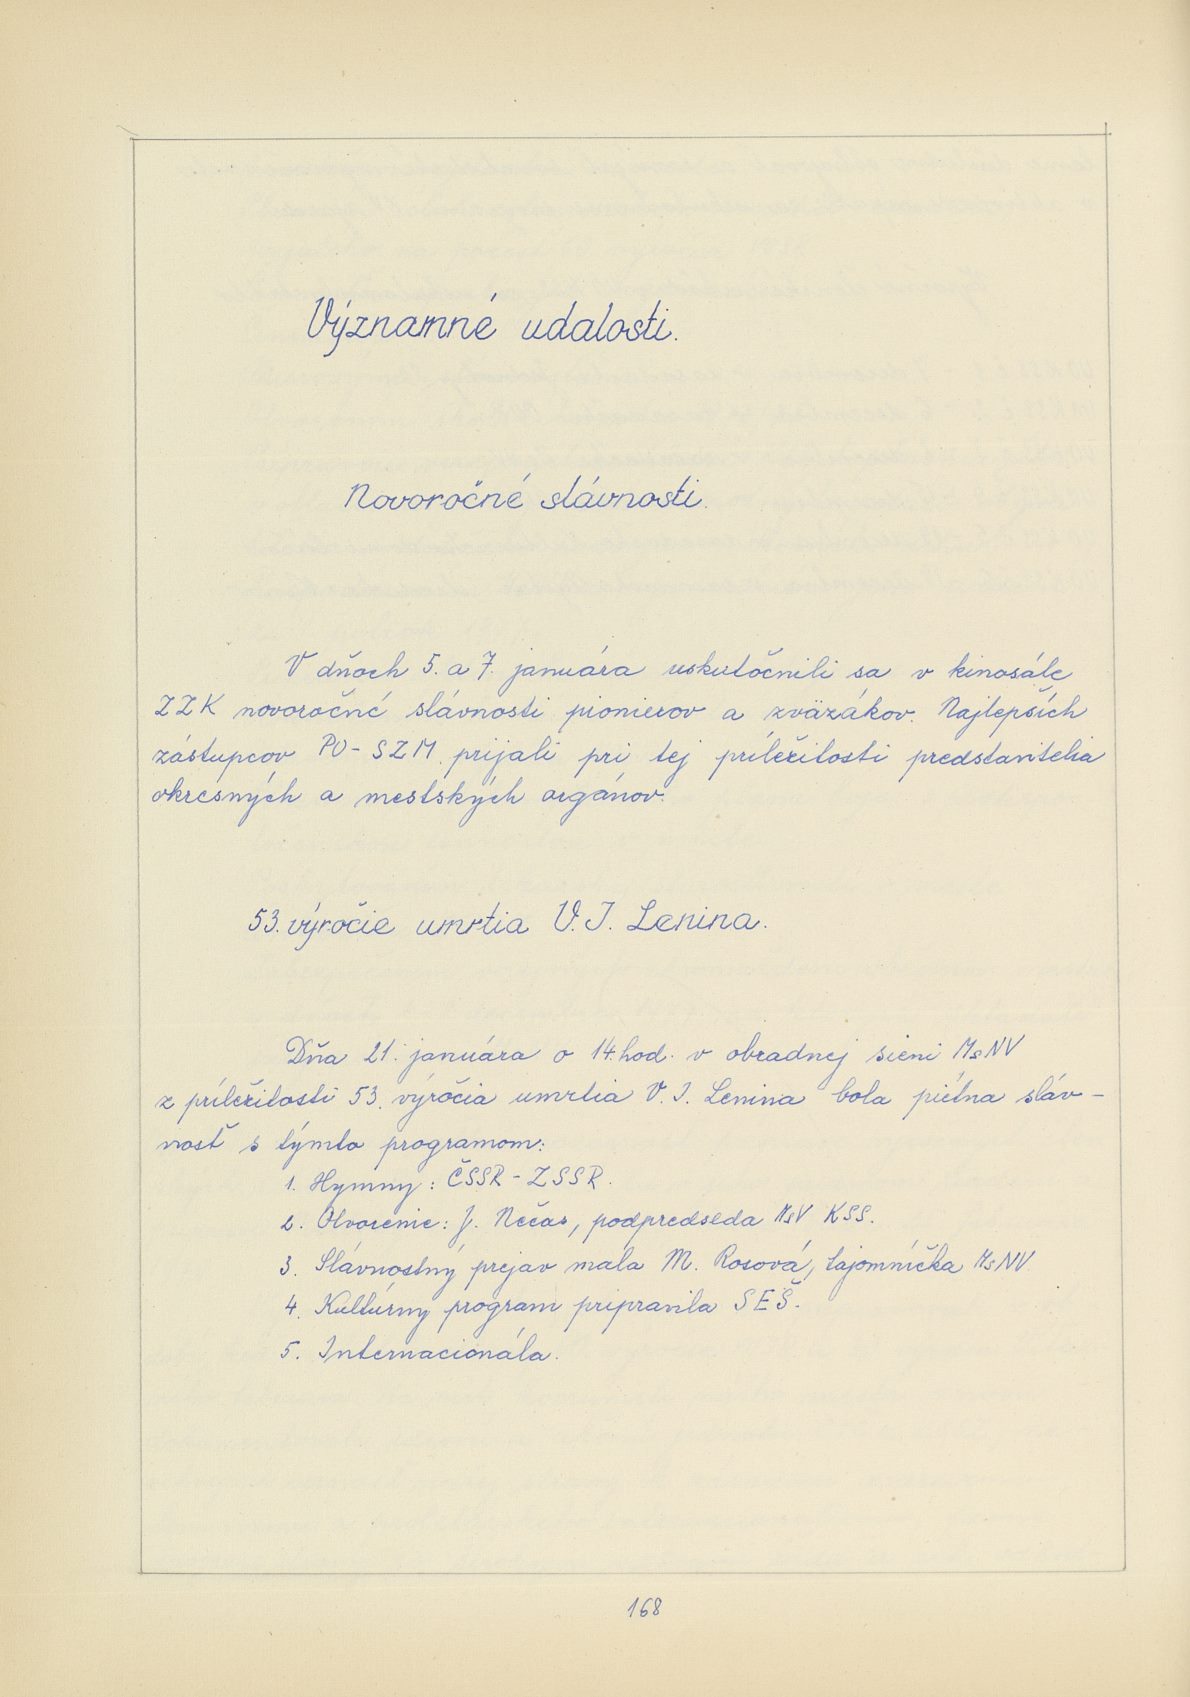 Významné udalosti.
Novoročné slávnosti.
V dňoch 5. a 7. januára uskutočnili sa v kinosále
ZZK novoročné slávnosti pionierov a zväzákov. Najlepších
zástupcov PO-SZM prijali pri tej príležitosti predstavitelia
okresných a mestských orgánov.
53. výročie umrtia V. I. Lenina.
Dňa 21. januára o 14. hod. v obradnej sieni MsNV
z príležitosti 53. výročia umrtia V. I. Lenina bola pietna sláv-
nosť s týmto programom:
1. Hymny: ČSSR - ZSSR.
2. Otvorenie: J. Nečas, podpredseda MsV KSS.
3. Slávnostný prejav mala M. Rosová, tajomníčka MsNV
4. Kultúrny program pripravila SEŠ.
5. Internacionála.
168